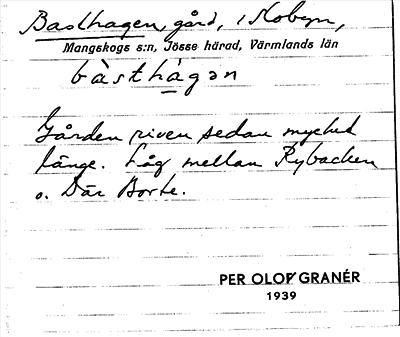 Basthagen, gård, i Nobyn,
Mangskogs s:n, Jösse härad, Värmlands län
bàsthágan
Gården riven sedan mycket
länge. Låg mellan Rybacken
o. Där Borte.
PER OLOF GRANÉR
1939